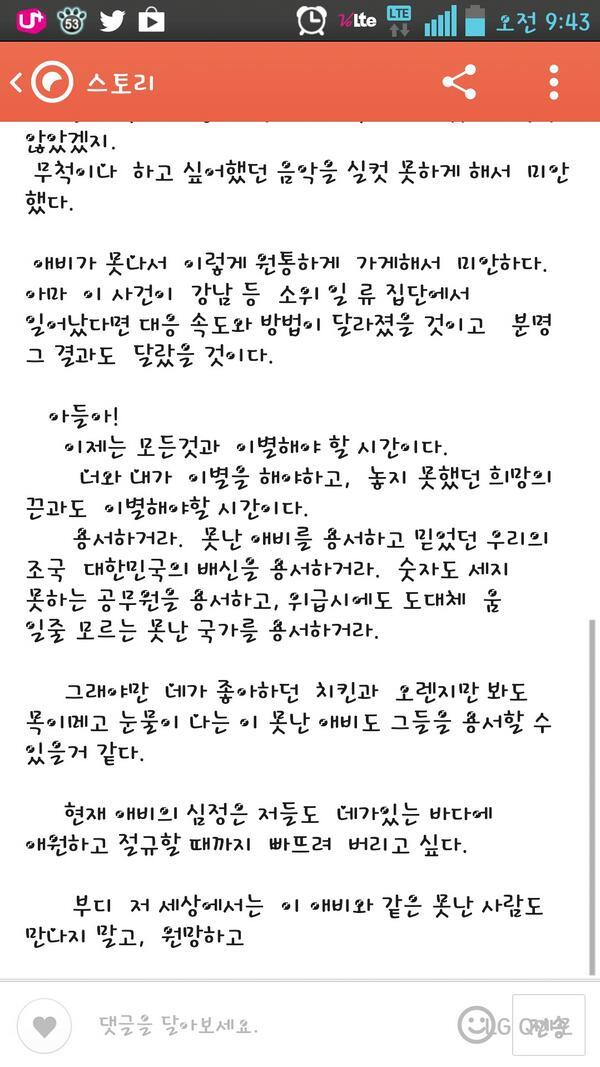 U+ 53 LTE LTE 오전 9:43
스토리
않았겠지.
무척이나 하고 싶어했던 음악을 실컷 못하게 해서 미안
했다.
애비가 못나서 이렇게 원통하게 가게해서 미안하다.
아마 이 사건이 강남 등 소위 일 류 집단에서
일어났다면 대응 속도와 방법이 달라졌을 것이고 분명
그 결과도 달랐을 것이다.
아들아!
이제는 모든것과 이별해야 할 시간이다.
너와 내가 이별을 해야하고, 놓지 못했던 희망의
끈과도 이별해야할 시간이다.
용서하거라. 못난 애비를 용서하고 믿었던 우리의
조국 대한민국의 배신을 용서하거라. 숫자도 세지
못하는 공무원을 용서하고, 위급시에도 도대체 움
일줄 모르는 못난 국가를 용서하거라.
그래야만 네가 좋아하던 치킨과 오렌지만 봐도
목이메고 눈물이 나는 이 못난 애비도 그들을 용서할 수
있을거 같다.
현재 애비의 심정은 저들도 네가있는 바다에
애원하고 절규할 때까지 빠뜨려 버리고 싶다.
부디 저 세상에서는 이 애비와 같은 못난 사람도
만나지 말고, 원망하고
댓글을 달아보세요.
전송